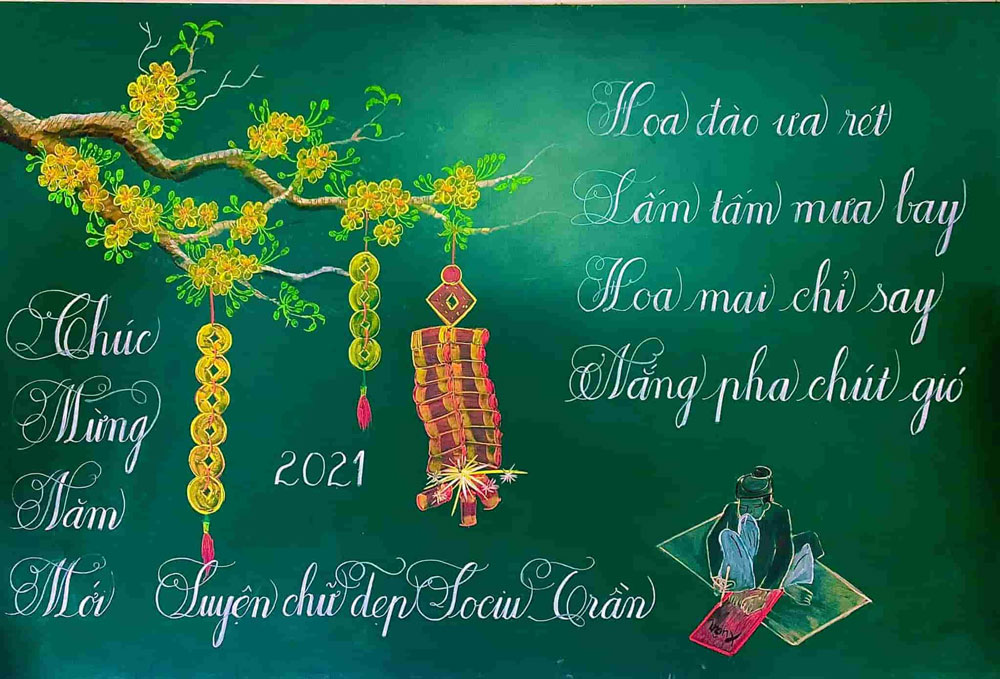 Hoa đào ưa rét
Lấm tấm mưa bay
Hoa mai chỉ say
Nắng pha chút gió
Chúc
Mừng
Năm
Mới
2021
Luyện chữ đẹp Sociu Trần